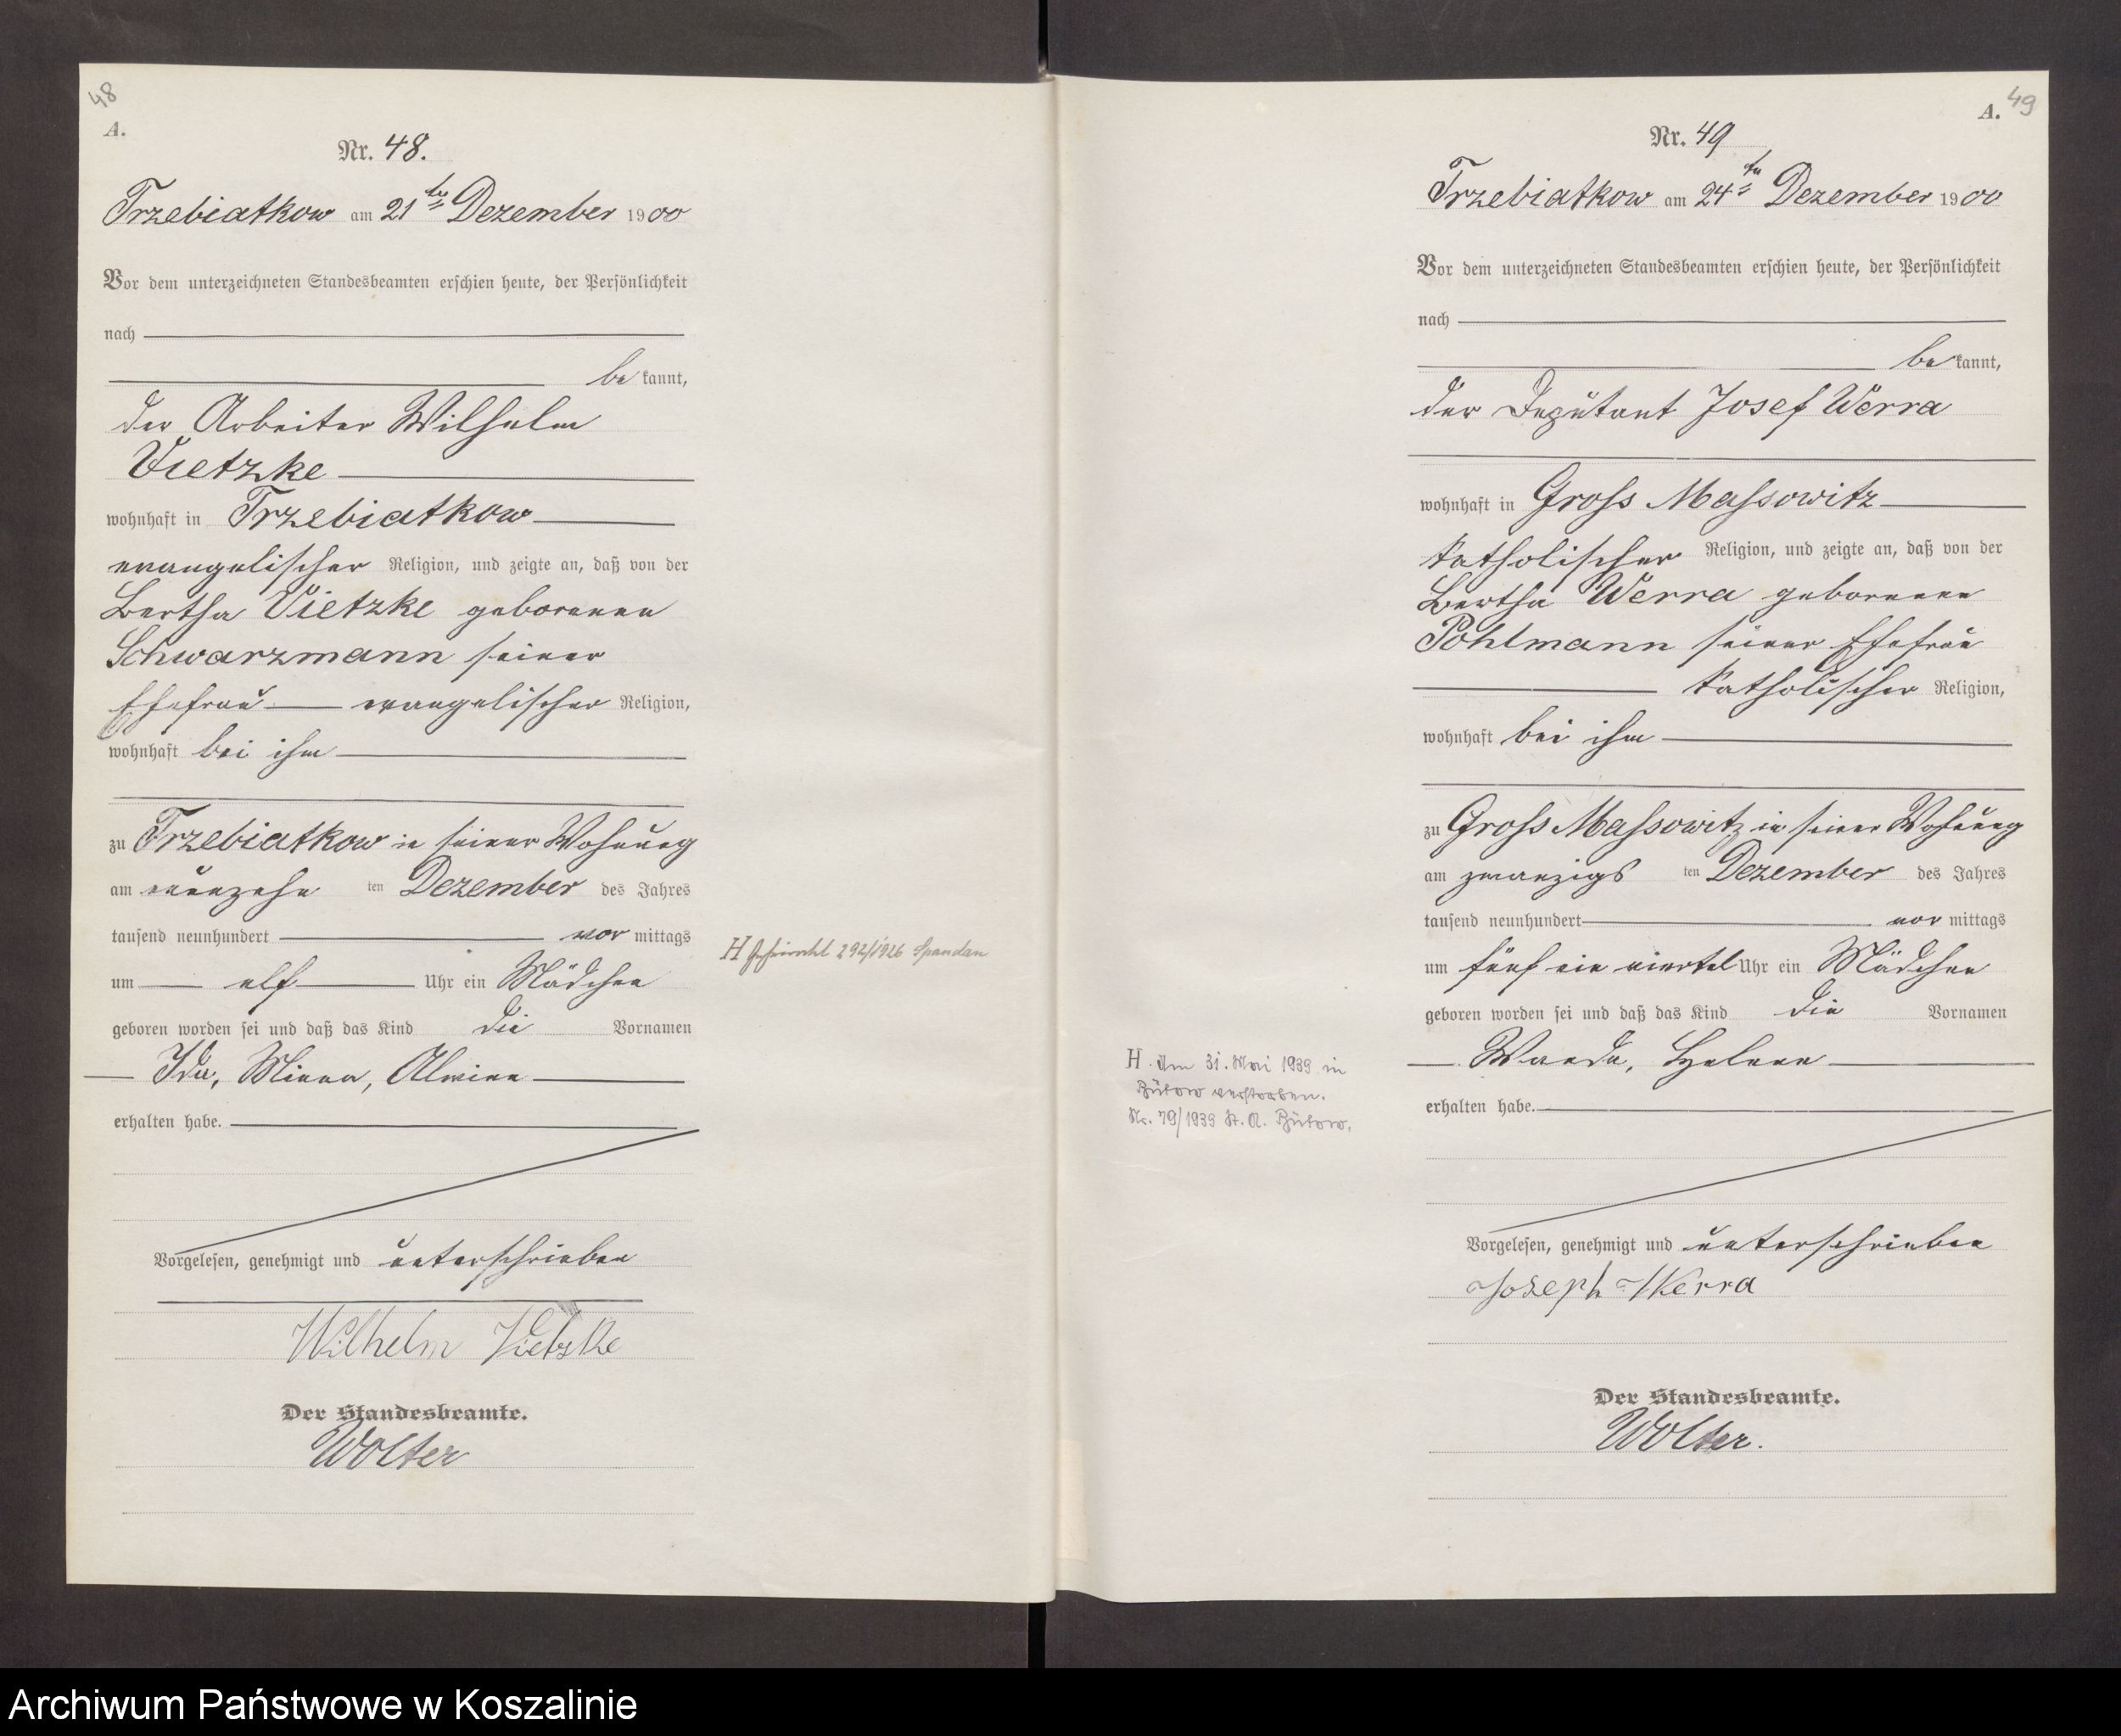 48
A.
Nr. 48.
Trzebiatkow am 21ten Dezember 1900
Vor dem unterzeichneten Standesbeamten erschien heute, der Persönlichkeit
nach
bekannt,
der Arbeiter Wilhelm
Vietzke
wohnhaft in Trzebiatkow
evangelischer Religion, und zeigte an, daß von der
Bertha Vietzke geborenen
Schwarzmann seiner
Ehefrau evangelischer Religion,
wohnhaft bei ihm
zu Trzebiatkow in seiner Wohnung
am neunzehn ten Dezember des Jahres
tausend neunhundert vor mittags
um elf Uhr ein Mädchen
geboren worden sei und daß das Kind die Vornamen
Ida, Minna, Alwine
erhalten habe.
Vorgelesen, genehmigt und unterschrieben
Wilhelm Vietzke
Der Standesbeamte.
Wolter
H Geheiratet 292/1926 Spandau
49
A.
Nr. 49
Trzebiatkow am 24ten Dezember 1900
Vor dem unterzeichneten Standesbeamten erschien heute, der Persönlichkeit
nach
bekannt,
der Deputant Josef Werra
wohnhaft in Gross Massowitz
katholischer Religion, und zeigte an, daß von der
Bertha Werra geborenen
Pohlmann seiner Ehefrau
katholischer Religion,
wohnhaft bei ihm
zu Gross Massowitz in seiner Wohnung
am zwanzigs ten Dezember des Jahres
tausend neunhundert vor mittags
um fünf ein viertel Uhr ein Mädchen
geboren worden sei und daß das Kind die Vornamen
Wanda, Helene
erhalten habe.
Vorgelesen, genehmigt und unterschrieben
Joseph Werra
Der Standesbeamte.
Wolter.
H. Am 31. Mai 1939 in
Bütow verstorben.
Nr. 79/1939 St. A. Bütow.
Archiwum Państwowe w Koszalinie